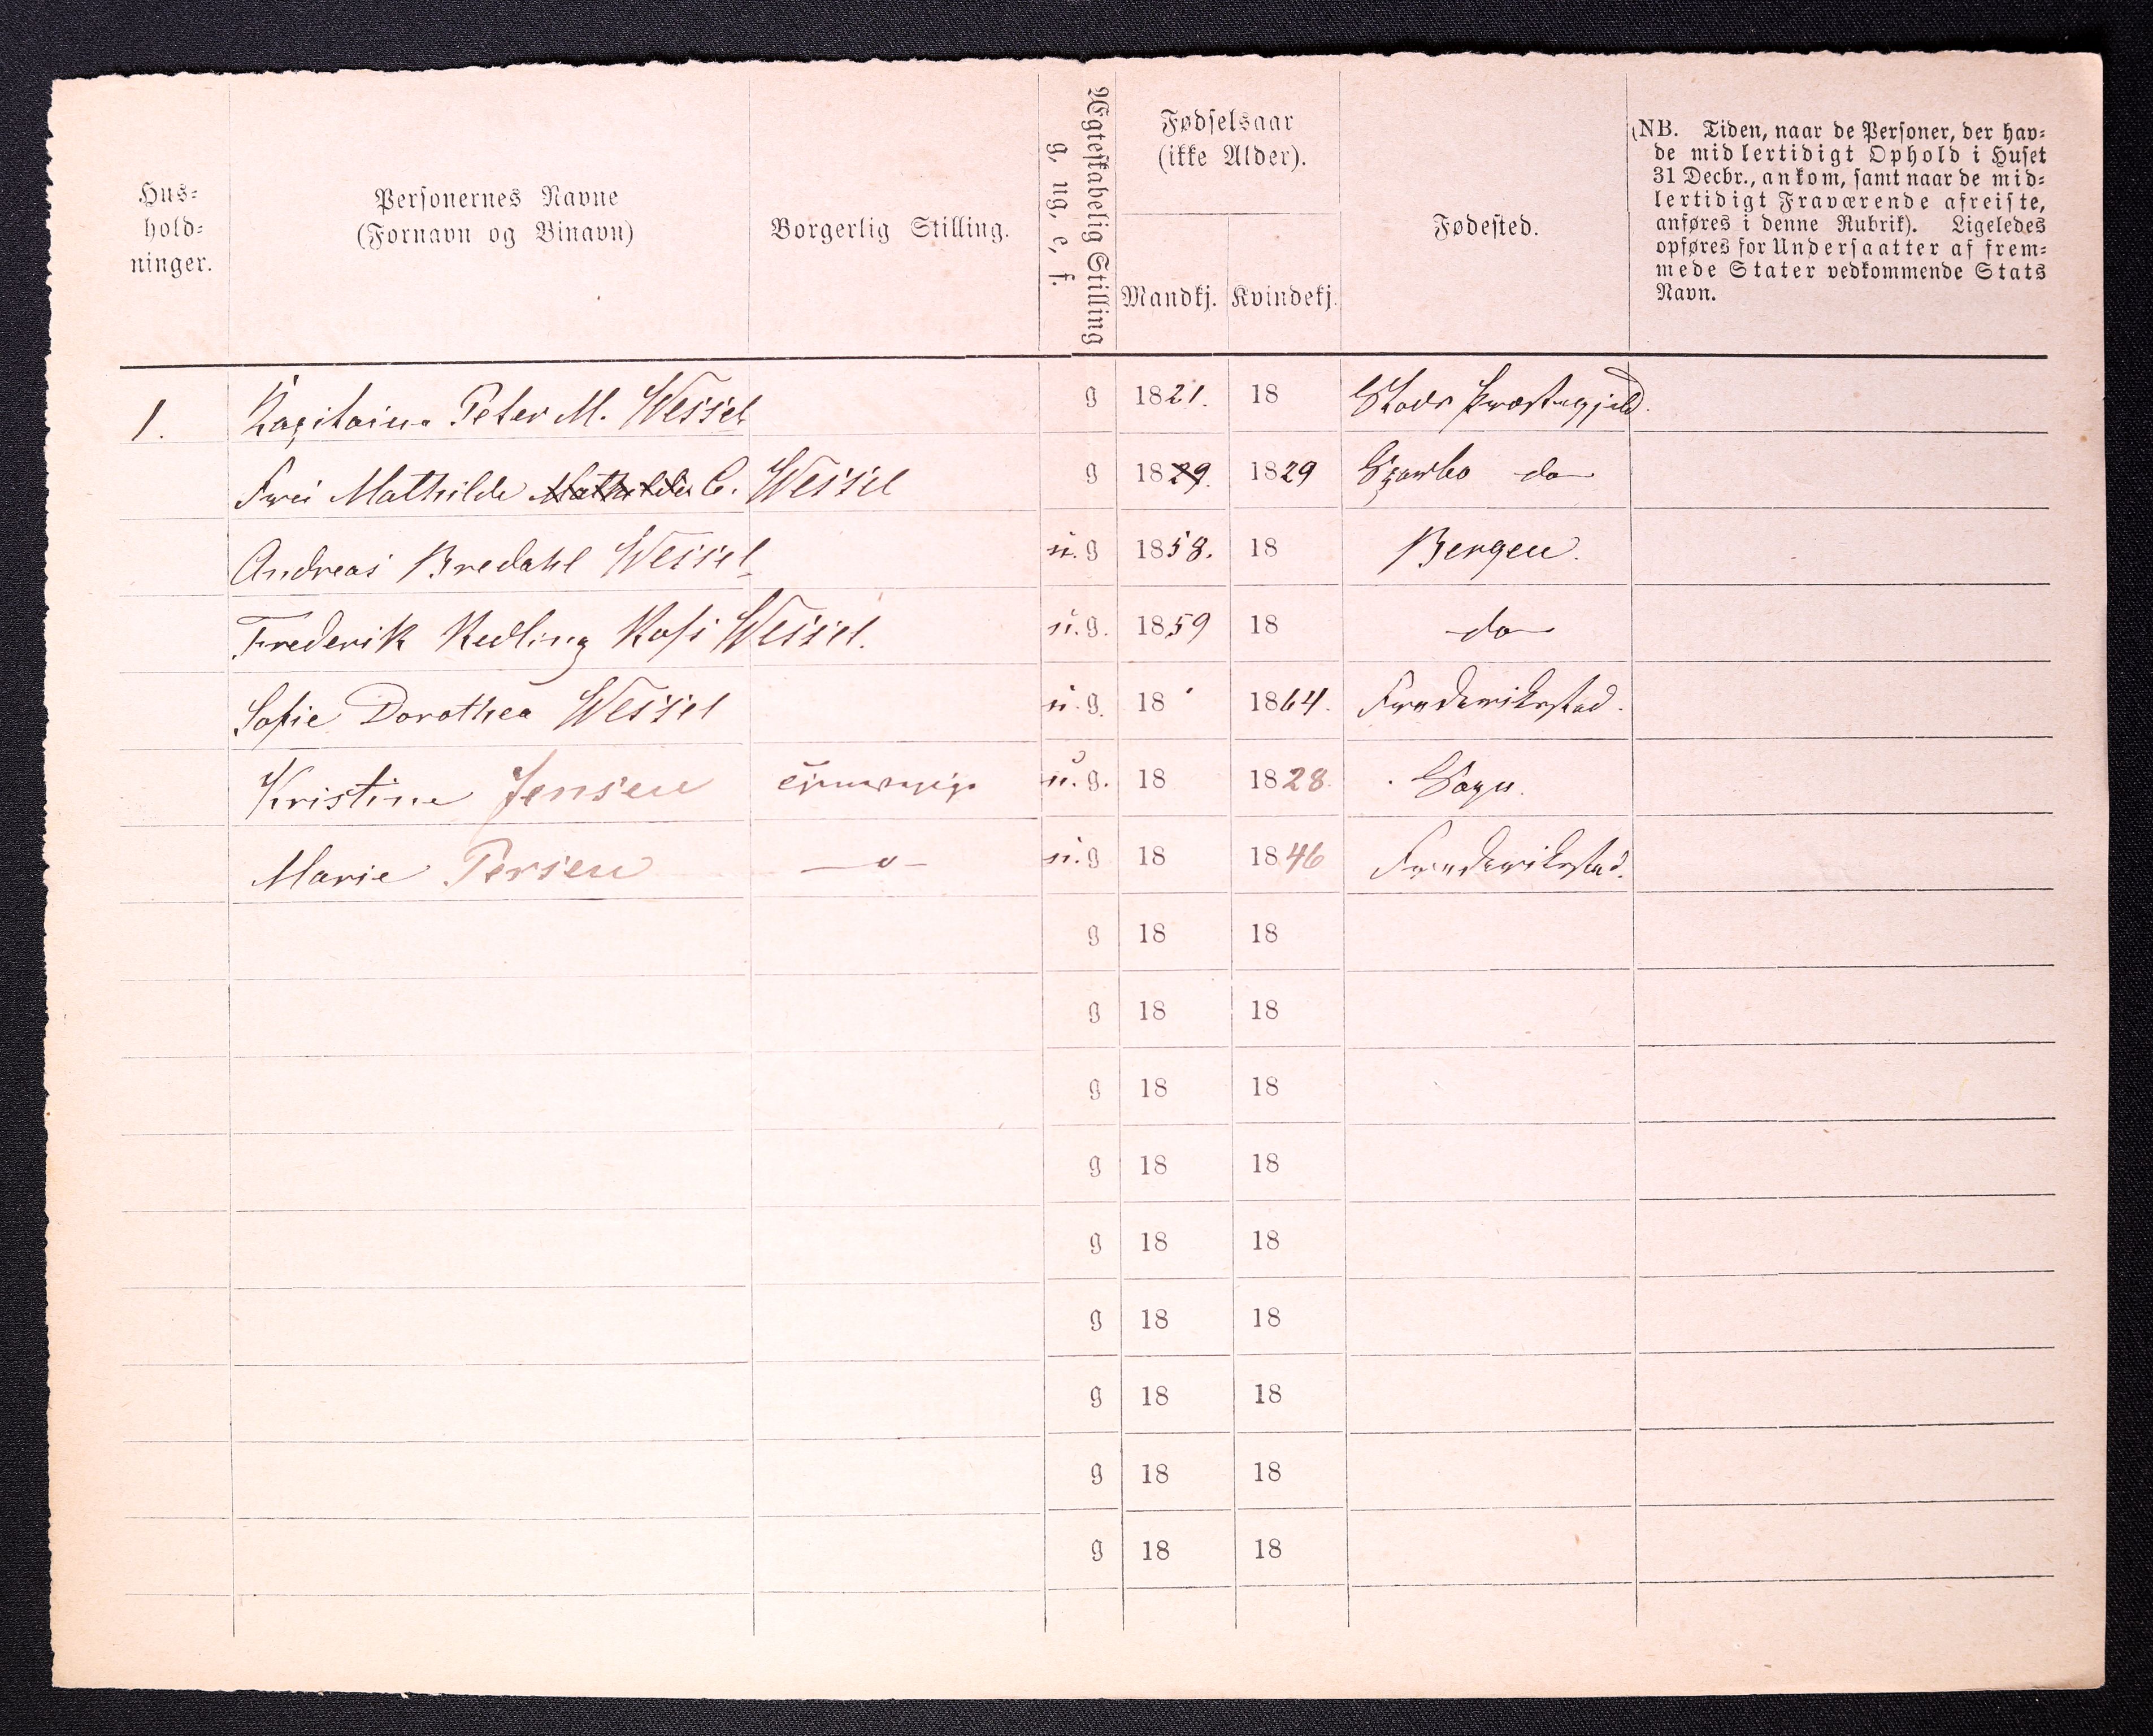 Hus-
hold-
ninger.
Personernes Navne
(Fornavn og Binavn)
Borgerlig Stilling.
Ægteskabelig Stilling
g, ug, e, f.
Fødselsaar
(ikke Alder).
Mandkj. Kvindekj.
Fødested.
(NB. Tiden, naar de Personer, der hav-
de midlertidigt Ophold i Huset
31 Decbr., ankom, samt naar de mid-
lertidigt Fraværende afreiste,
anføres i denne Rubrik). Ligeledes
opføres for Undersaatter af frem-
mede Stater vedkommende Stats
Navn.
1. Kapitaine Peter M. Wessel g 1821. 18 Præstegjeld.
Frue Mathilde Mathilde C. Wessel g 1829. 1829 do
Andreas Bredahl Wessel u.g 1858. 18 Bergen.
Frederik Wessel. u.g. 1859 18 do
Sofie Dorothea Wessel u.g. 18 1864. Frederikstad.
Kristine Jensen u.g. 18 1828. Sogn.
Marie Persen -"- u.g 18 1846 Frederikstad.
g 18 18
g 18 18
g 18 18
g 18 18
g 18 18
g 18 18
g 18 18
g 18 18
g 18 18